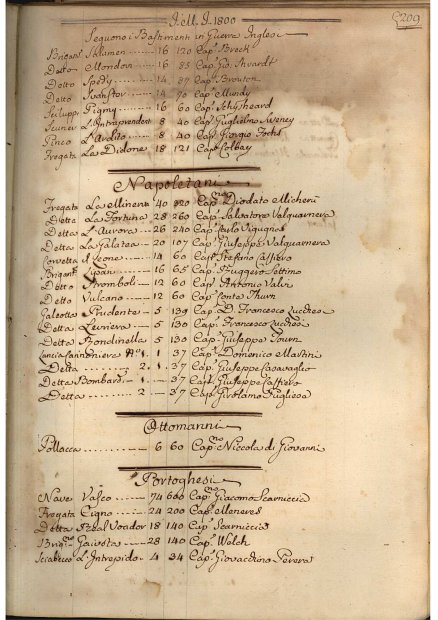 J. M. J. 1800
209
Seguono i Bastimenti in Guerra Inglesi
Brigant. Salamen ----- 16 120 Capº Breck
Detto Mondovi ----- 16 85 Capº Gio: Stvardt
Detto Spedy ----- 14 87 Capº Brouton
Detto ----- 14 70 Capº Mundy
Pigmy ----- 16 60 Capº Schysheard
L'Intraprendent 8 40 Capº Guglielmo Sweney
Pinco L'Ardito ----- 8 40 Capº Giorgio Fochs
Fregata La Didone ---- 18 121 Capº Colbay
Napoletani
Fregata La Minerva 40 320 Capº Diodato Micheru
Detta La Fortuna 28 260 Capº Salvatore Valguarnera
Detta L'Aurora ---- 26 240 Capº Paulo Vigugnas
Detta La Galatea -- 20 107 Capº Giuseppe Valguarnera
Corvetta Il Leone ---- 14 60 Capº Stefano Caffiero
Brigant. Lipari ---- 16 65 Capº Ruggero Settimo
Detto Stromboli ---- 12 60 Capº Antonio
Detto Vulcano ---- 12 60 Capº Conte Thurn
Galeotta Prudente -- 5 139 Capº D. Francesco
Detta Levriera ---- 5 130 Capº Francesco
Detta Rondinella -- 5 130 Capº Giuseppe Tourn
Lancia Cannoniera Nº 1. 1 37 Capº Domenico Martini
Detta ------- 2. 1. 37 Capº Giuseppe Casavaglio
Detta Bombard: - 1. --- 37 Capº Giuseppe Caffiero
Detta ------- 2 --- 37 Capº Girolamo Pugliese
Ottomanni
Pollacca -------- 6 60 Capº Niccola di Giovanni
Portoghesi
Nave Vasco ------- 74 600 Capº Giacomo Scarniccia
Fregata Cigno ---- 24 200 Capº Meneres
Detta Real Voador 18 140 Capº Scarniccia
Brigº Gaivota ---- 28 140 Capº Welch
Sciabecco L'Intrepido - 4 34 Capº Giovacchino Perera